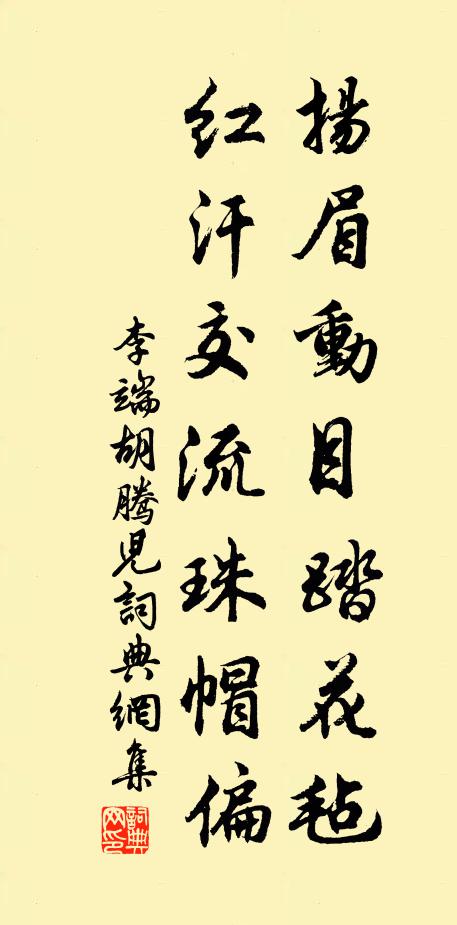 揚眉動目踏花毡
紅汗交流珠帽偏
李端胡騰兒詞典網集
詞典
网印